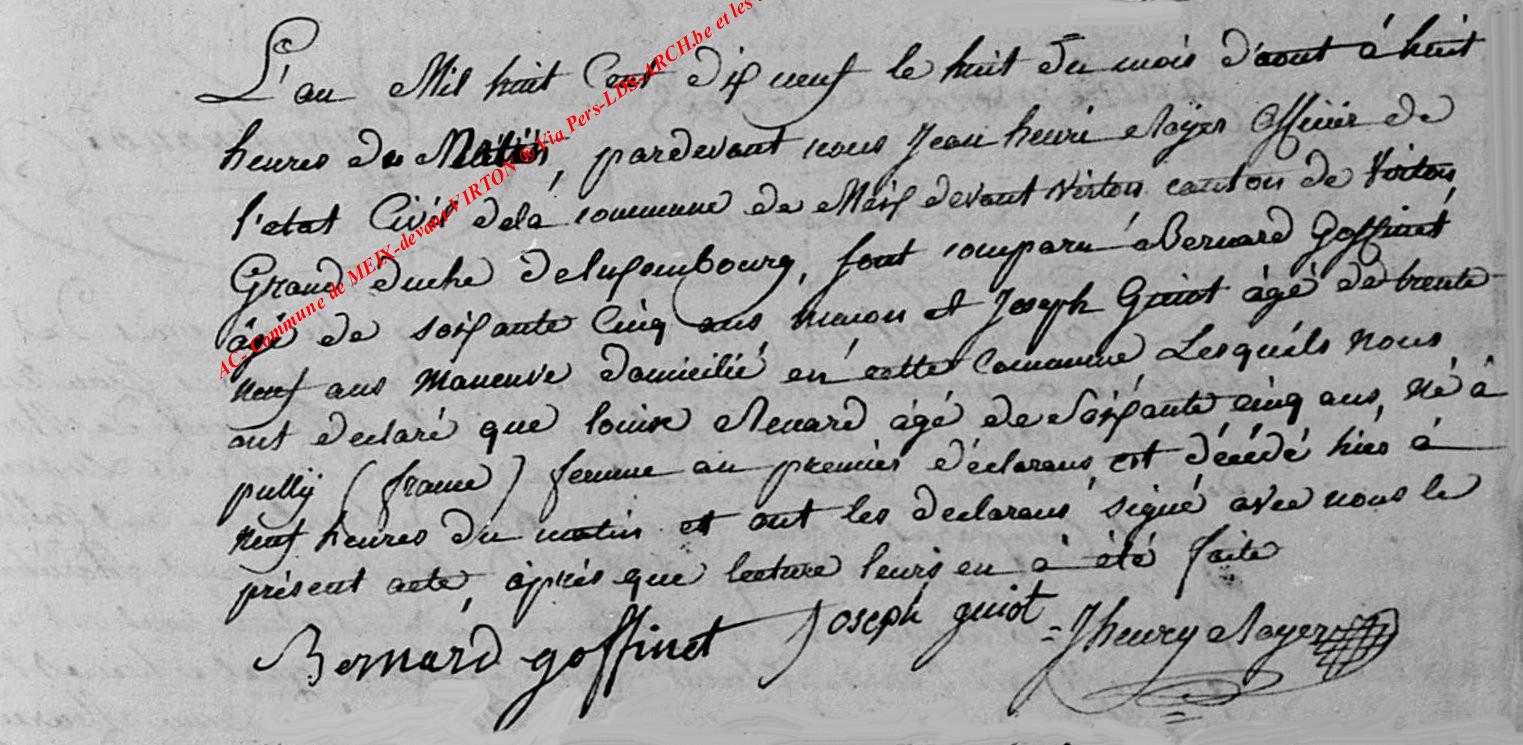 L'an Mil huit Cent dix neuf le huit du mois d'aout à huit
heures du Matin, pardevant nous Jean henri Noÿer officier de
l'etat Civil dela commune de Meix devant Virton canton de Virton,
Grand duche deluxembourg, sont comparu Bernard Goffinet
âgé de soixante Cinq ans, macon et Joseph Guiot âgé de trente
neuf ans maneuve domicilié en cette Commune Lesquels nous
ont declaré que louise Renard âgé de Soixante cinq ans, né à
pully (france) femme au premier déclarans est décédé hier à
neuf heures du matin et ont les declarans signé avec nous le
présent acte, après que lecture leurs en à été faite
Bernard goffinet Joseph guiot Jhenry
AC- Commune de MEIX-devant VIRTON ® Via Pers-LDS-ARCH.be et les